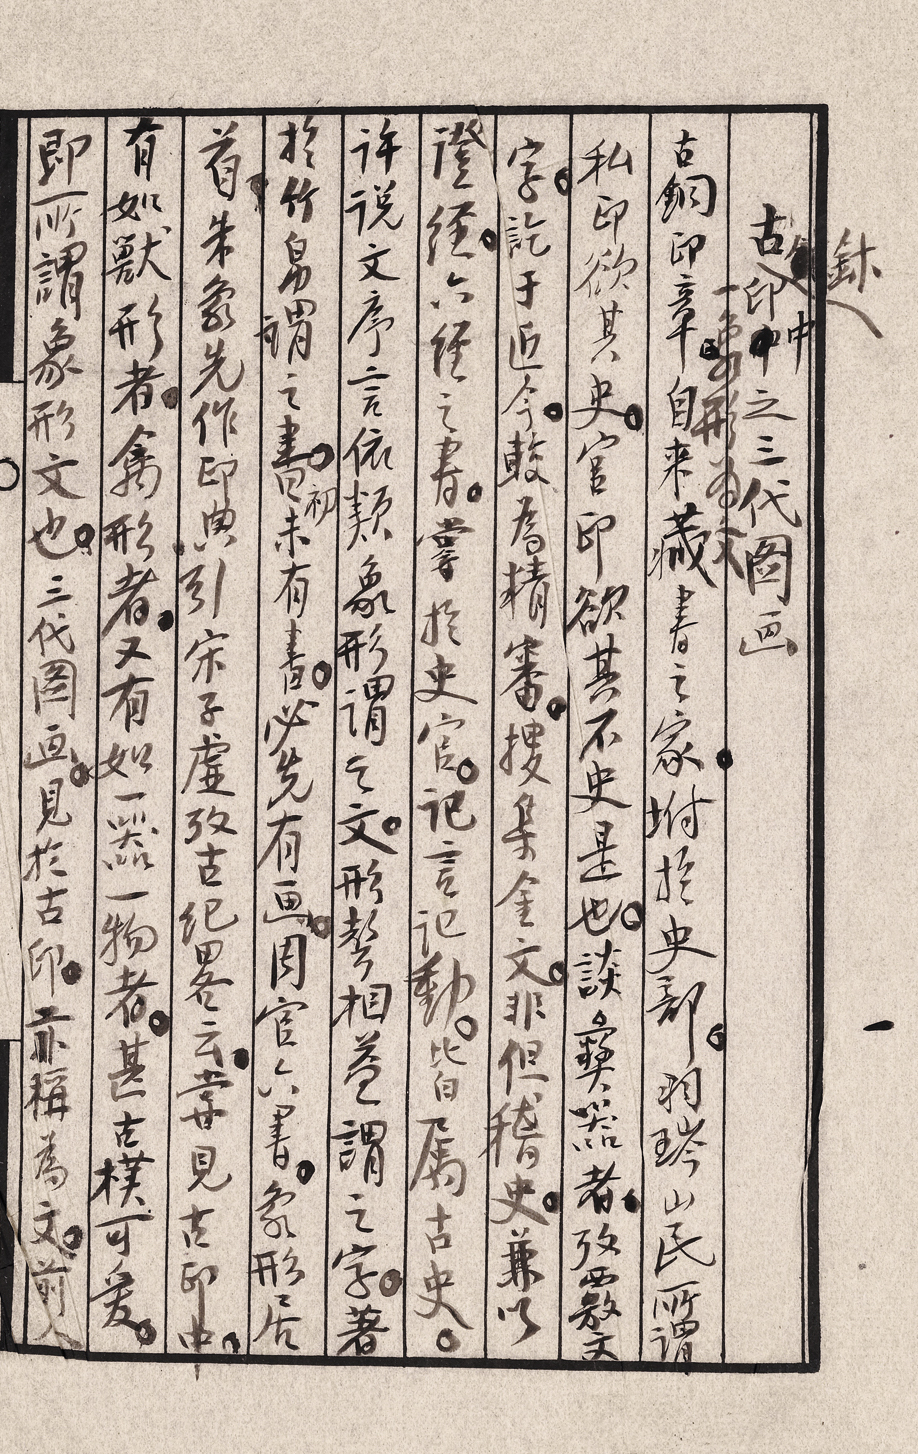 古印中之三代图画
鉢
一象形為文
古銅印章自来藏書之家坿於史部羽琌山民所謂
私印欲其史官印欲其不史是也談彝器者攷覈文
字訖于近今較為精審搜集金文非但稽史兼以
證經六經之書掌於史官記言記動皆属古史
许说文序言依類象形謂之文形聲相益謂之字著
於竹帛謂之書初未有書必先有画周官六書象形居
首朱象先作印典引宋子虚攷古纪畧云嘗見古印中
有如獸形者禽形者又有如一器一物者甚古樸可爱
即所謂象形文也三代图画見於古印亦稱為文前人